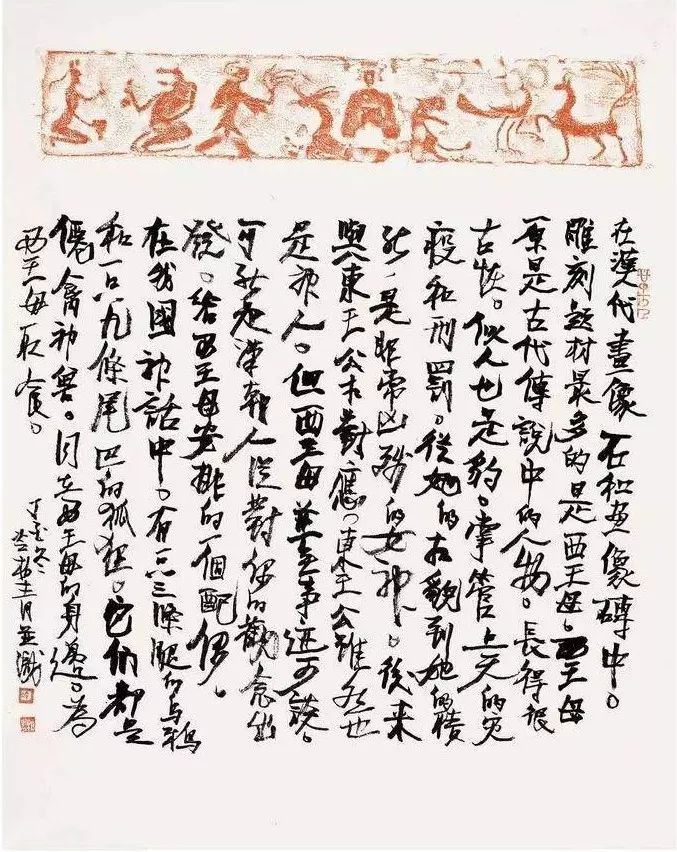 在漢代畫像石和画像磚中。
雕刻題材最多的是西王母。西王母
原是古代傳說中的人物。長得很
古怪。似人也是豹。掌管上天的灾
疫和刑罰。從她的相貌到她的職
能。是非常凶殘的女神。後来
與東王公相對應。東王公雖然也
是神人。但西王母並無事迹可談。
可能是漢朝人從對偶的觀念出
發。给西王母安排的一個配偶。
在我國神話中。有一只三條腿的烏鴉
和一只九條尾巴的狐狸。它们都是
僊禽神兽。同在西王母的身邊。為
西王母取食。
丁亥冬
並識